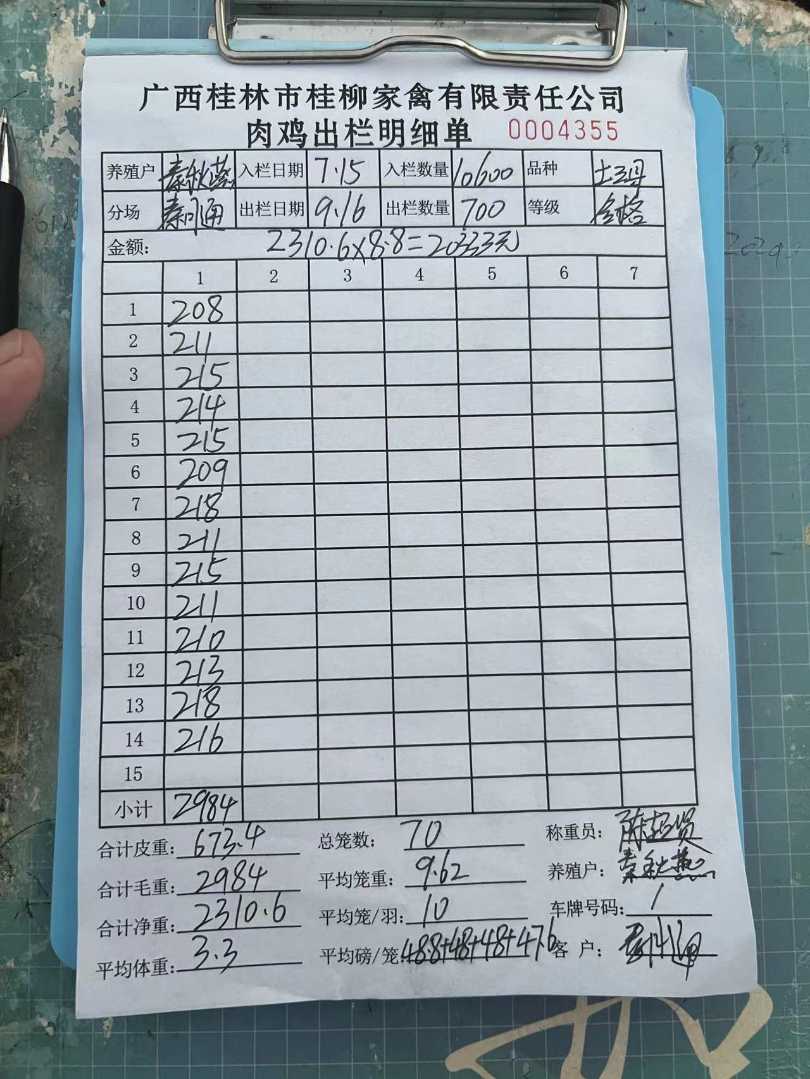 广西桂林市桂柳家禽有限责任公司
肉鸡出栏明细单 0004355
养殖户 秦秋燕 入栏日期 7.15 入栏数量 10600 品种 土三号
分场 出栏日期 9.16 出栏数量 700 等级 合格
金额: 2310.6×8.8=20333元
1 2 3 4 5 6 7
1 208
2 211
3 215
4 214
5 215
6 209
7 218
8 211
9 215
10 211
11 210
12 213
13 218
14 216
15
小计 2984
合计皮重: 673.4 总笼数: 70 称重员:
合计毛重: 2984 平均笼重: 9.62 养殖户: 秦秋燕
合计净重: 2310.6 平均笼/羽: 10 车牌号码: /
平均体重: 3.3 平均磅/笼 48.8+48+48+47.6 客户: